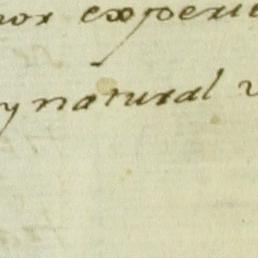 nor experie
y natural v